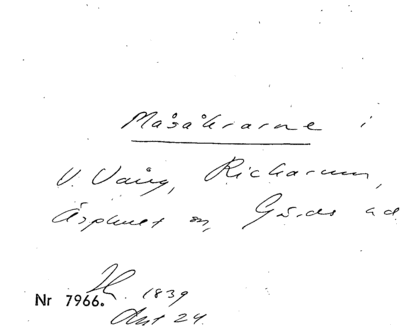 Måsåkrarne i
V. Vång, Rickarum,
Äsphult sn, Gärds hd
Nr 7966. 1839
Akt 24.